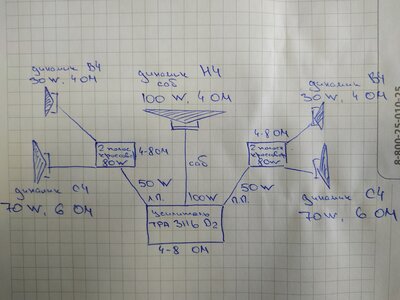 динамик ВЧ
30 W, 4 ОМ
динамик НЧ
саб
100 W, 4 ОМ
динамик ВЧ
30 W, 4 ОМ
4-8 ОМ
2 полос
кроссовер
80W
4-8ОМ
2 полос
кроссовер
80W
саб
динамик СЧ
70 W, 6 ОМ
50 W
л.п.
100W
50W
п.п.
динамик СЧ
70 W, 6 ОМ
усилитель
TPA 3116 D2
4-8 ОМ
8-800-25-010-25